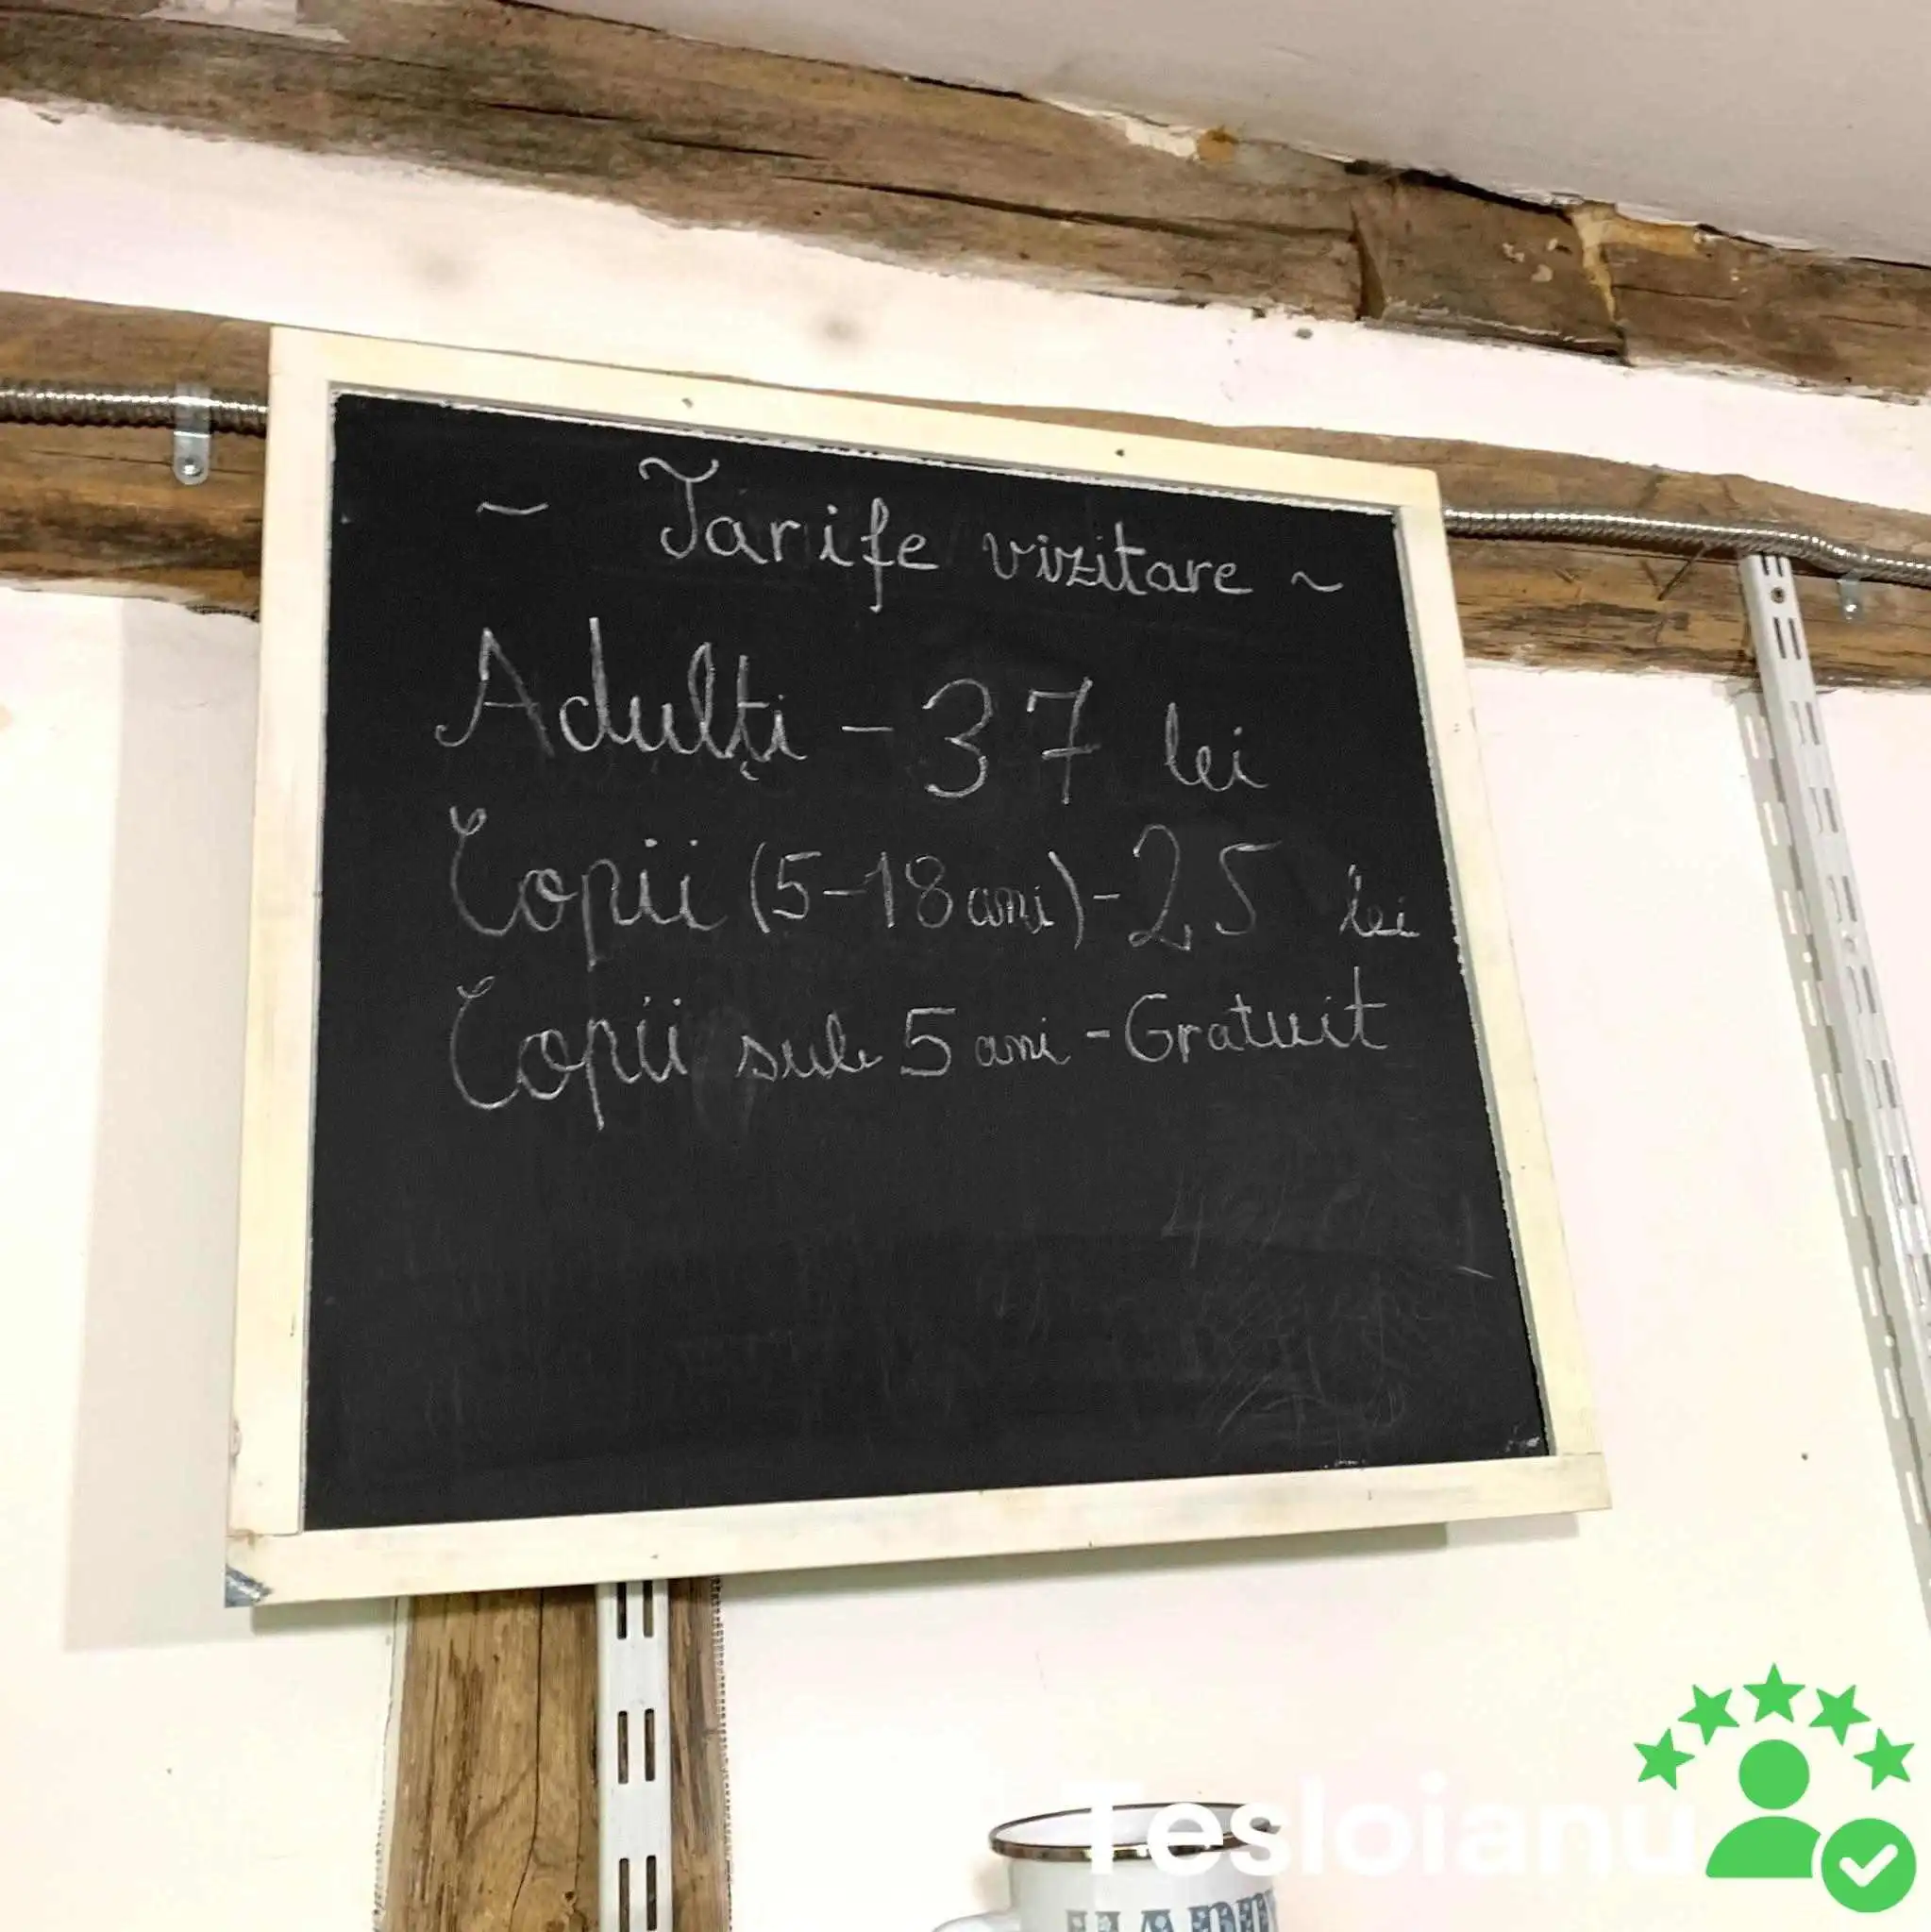 ~ Tarife vizitare ~
Adulți - 37 lei
Copii (5-18 ani) - 25 lei
Copii sub 5 ani - Gratuit
Tesloianu